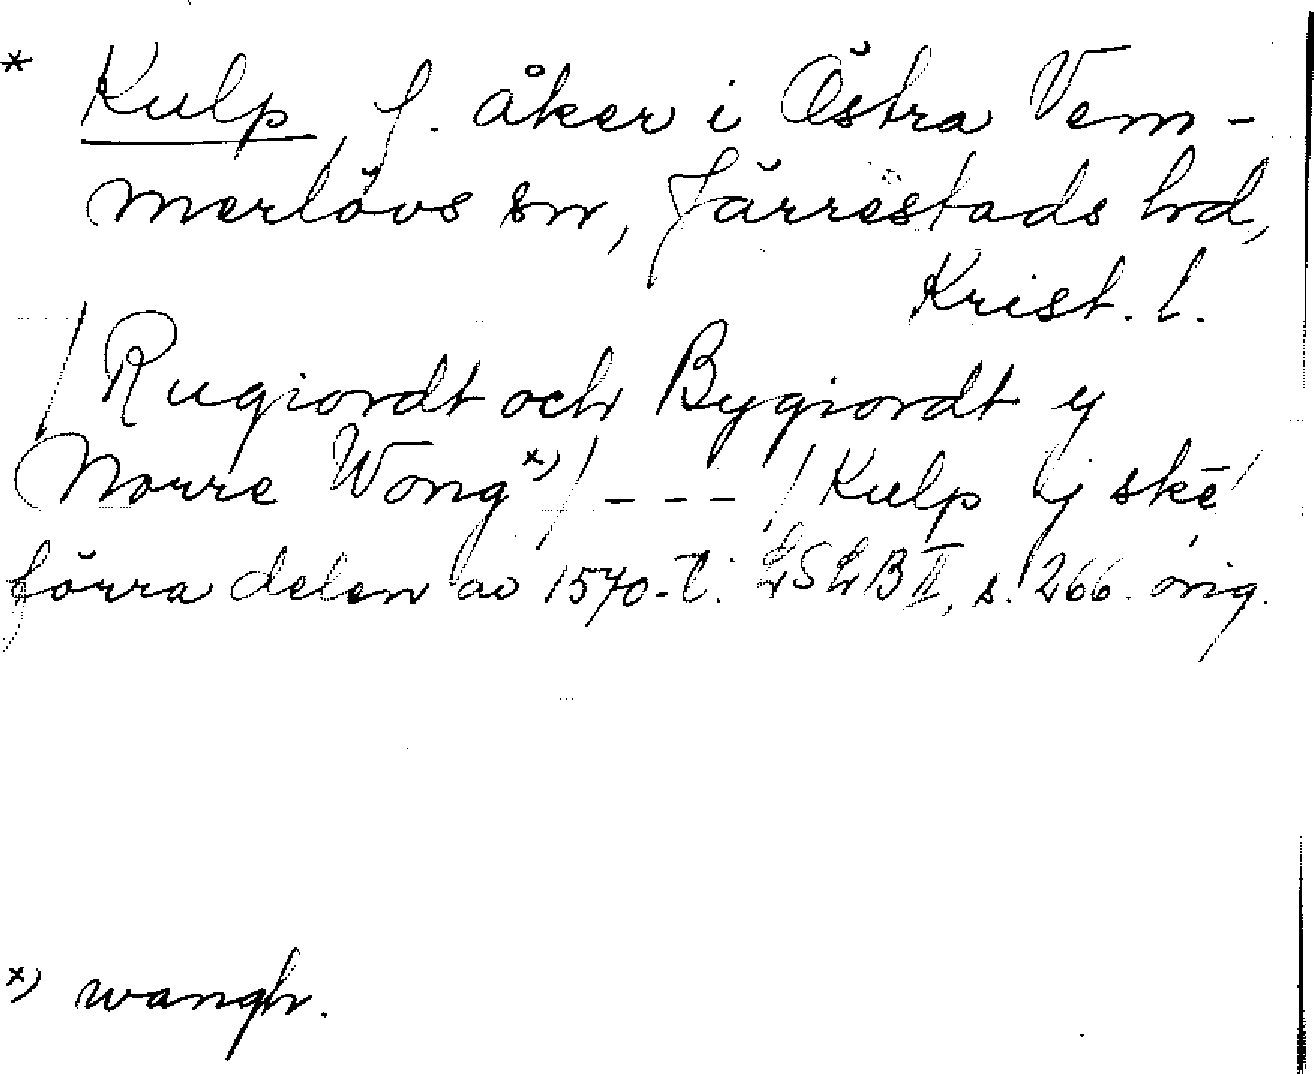 * Kulp, f. åker i Östra Vem-
merlövs sn, Järrestads hd,
Krist. l.
/Rugiordt och Bygiordt y
Norre Wong x)/ - - - / Kulp y skē/
förra delen av 1570-t. LSLB II, s. 266. orig.
x) wangh.